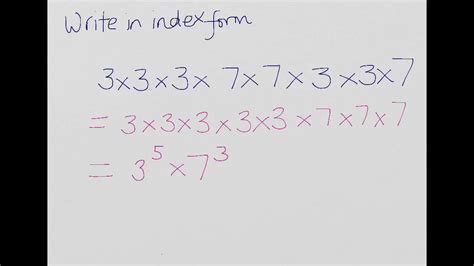 Write in index form
3×3×3×7×7×3×3×7
= 3×3×3×3×3×7×7×7
= 3⁵×7³